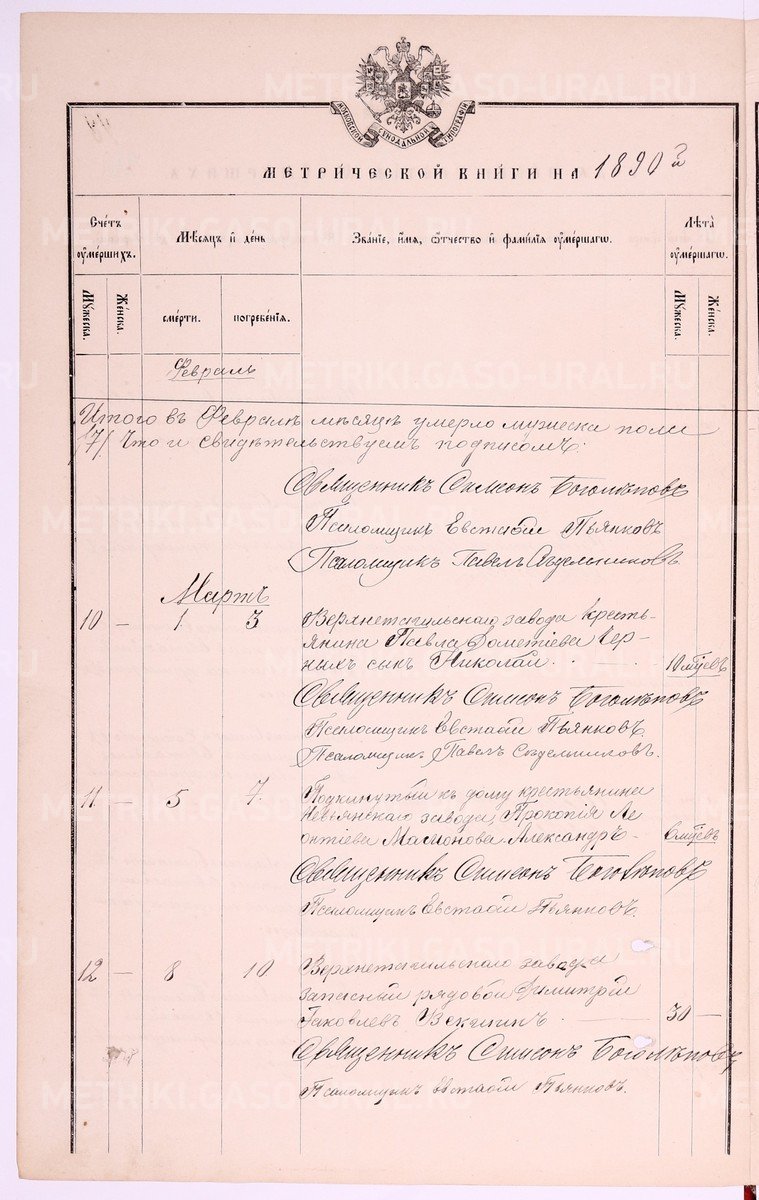 МОСКОВСКОЙ СУНОДАЛЬНОЙ ТИПОГРАФІИ
МЕТРИЧЕСКОЙ КНИГИ НА 1890 й
Счетъ ѹмершихъ.
Мѣсяцъ и день
Званіе, имя, ѿчество и фамилія ѹмершагѡ.
Лѣта ѹмершагѡ.
Мужеска.
Женска.
смерти.
погребенія.
Мужеска.
Женска.
Февраль
Итого въ Февралѣ мѣсяцѣ умерло мужеска пола
/7/ Что и свидѣтельствуемъ подписомъ:
Священникъ Симеонъ Боголѣповъ
Псаломщикъ Евстафій Пьянковъ
Псаломщикъ Павелъ
Мартъ
10 — 1 3 Верхнетагильскаго завода кресть-
янина Павла Дометіева Чер-
ныхъ сынъ Николай 10 мѣсѣ
Священникъ Симеонъ Боголѣповъ
Псаломщикъ Евстафій Пьянковъ
Псаломщикъ Павелъ
11 — 5 7 Подкинутый къ дому крестьянина
Невьянскаго завода Прокопія Ле
онтіева Мамонова Александръ - 6 мѣсѣ
Священникъ Симеонъ Боголѣповъ
Псаломщикъ Евстафій Пьянковъ.
12 — 8 10 Верхнетагильскаго завода
запасный рядовой Димитрій
Іаковлевъ Векшинъ. 30 —
Священникъ Симеонъ Боголѣповъ
Псаломщикъ Евстафій Пьянковъ.
METRIKI.GASO-URAL.RU